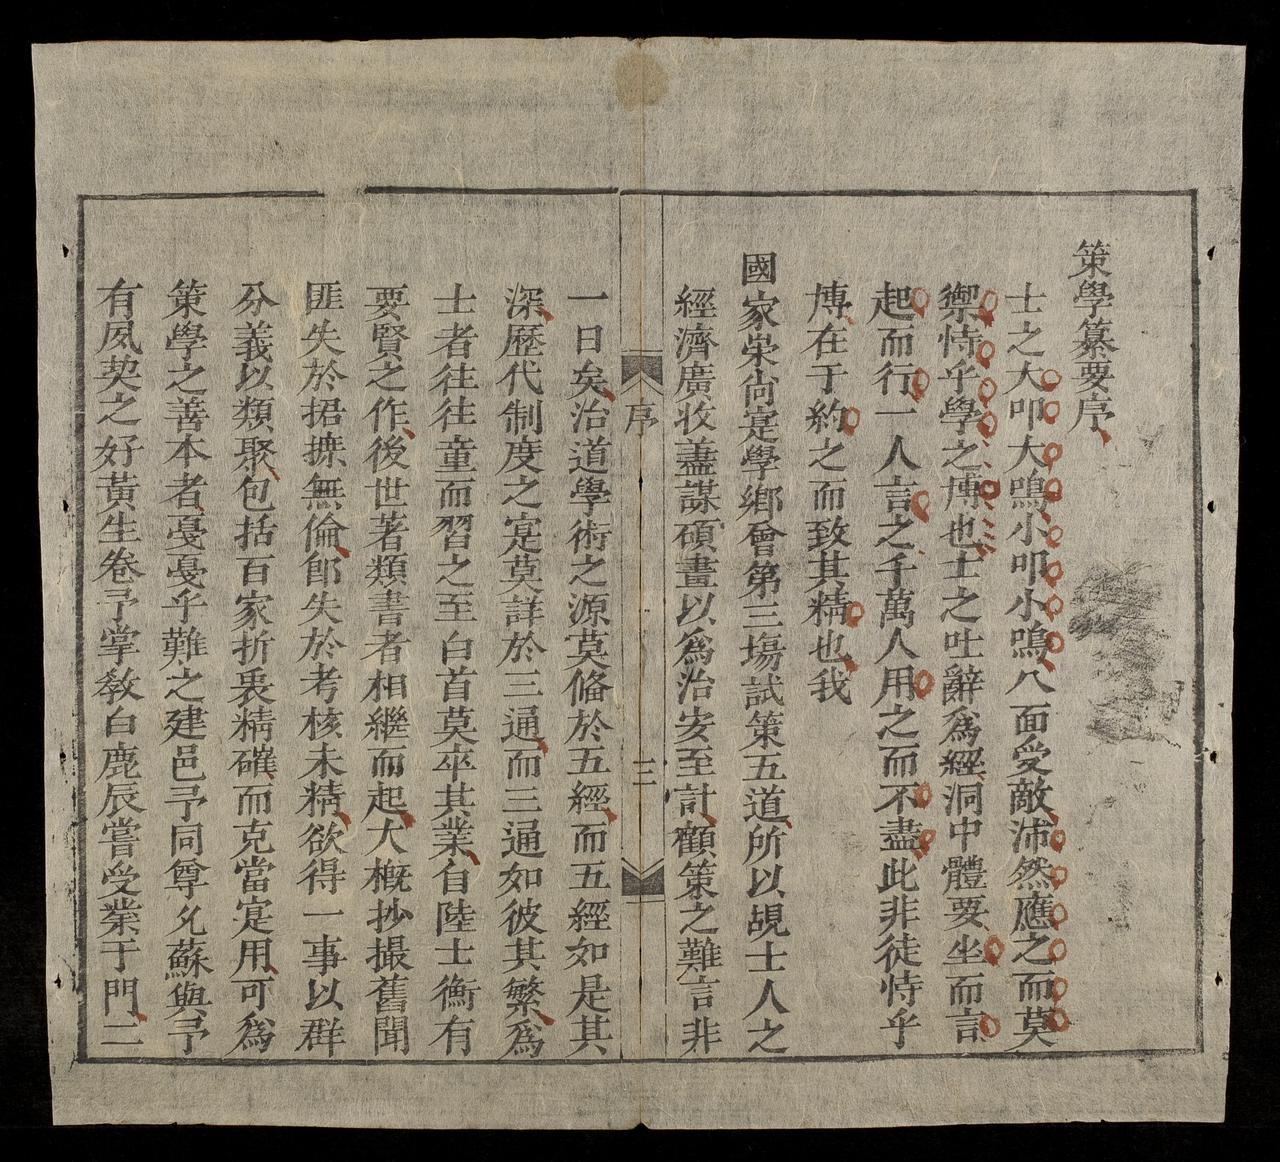 策學纂要序
士之大叩大鳴小叩小鳴八面受敵沛然應之而莫
禦恃乎學之博也士之吐辭為經洞中體要坐而言
起而行一人言之千萬人用之而不盡此非徒恃乎
博在于約之而致其精也我
國家崇尚寔學鄉會第三塲試策五道所以覘士人之
經濟廣收藎謀碩畫以為治安至計顧策之難言非
序
三
一日矣治道學術之源莫俻於五經而五經如是其
深歷代制度之寔莫詳於三通而三通如彼其繁為
士者往往童而習之至白首莫卒其業自陸士衡有
要賢之作後世著類書者相繼而起大概抄撮舊聞
匪失於捃摭無倫郎失於考核未精欲得一事以群
分義以類聚包括百家折衷精確而克當寔用可為
策學之善本者戞戞乎難之建邑予同尊兄蘇與予
有夙契之好黃生卷予掌教白鹿辰嘗受業于門二